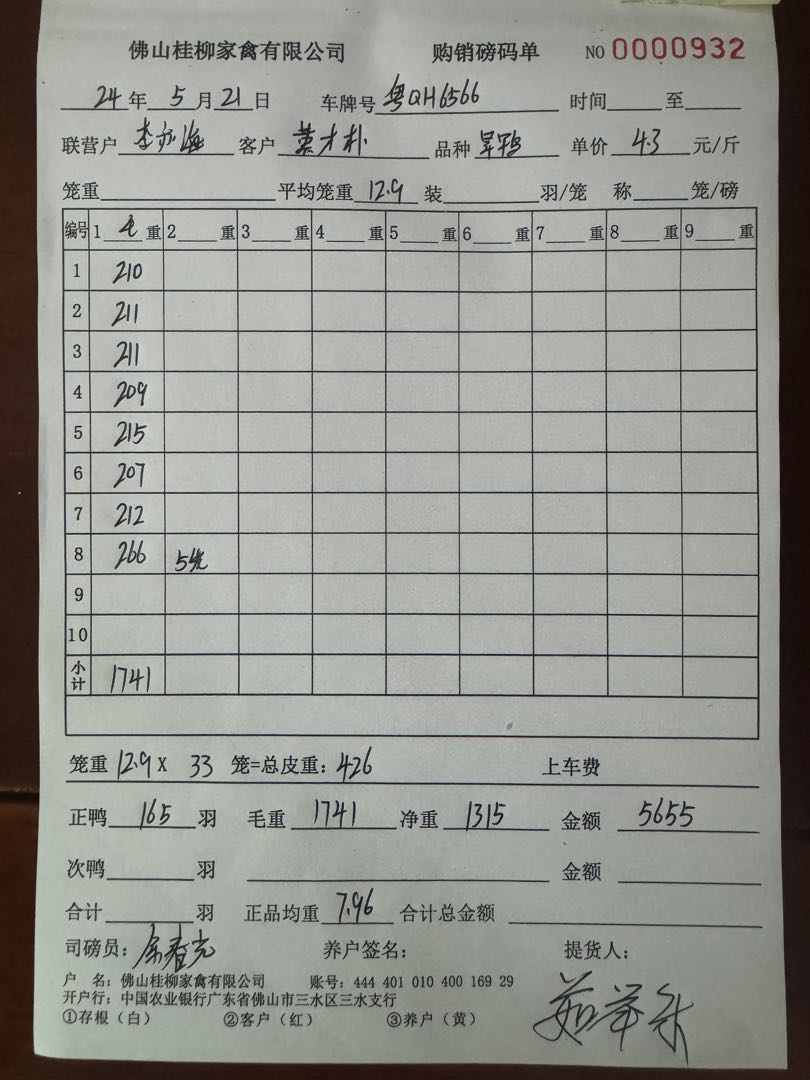 佛山桂柳家禽有限公司 购销磅码单 NO 0000932
24年5月21日 车牌号 粤QH6566 时间 至
联营户 客户 品种 旱鸭 单价 4.3 元/斤
笼重 平均笼重 12.9 装 羽/笼 称 笼/磅
编号 1 毛 重 2 重 3 重 4 重 5 重 6 重 7 重 8 重 9 重
1 210
2 211
3 211
4 209
5 215
6 207
7 212
8 266 5笼
9
10
小计 1741
笼重 12.9 X 33 笼=总皮重: 426 上车费
正鸭 165 羽 毛重 1741 净重 1315 金额 5655
次鸭 羽 金额
合计 羽 正品均重 7.96 合计总金额
司磅员: 养户签名: 提货人:
户 名: 佛山桂柳家禽有限公司 账号: 444 401 010 400 169 29
开户行: 中国农业银行广东省佛山市三水区三水支行
①存根（白） ②客户（红） ③养户（黄）